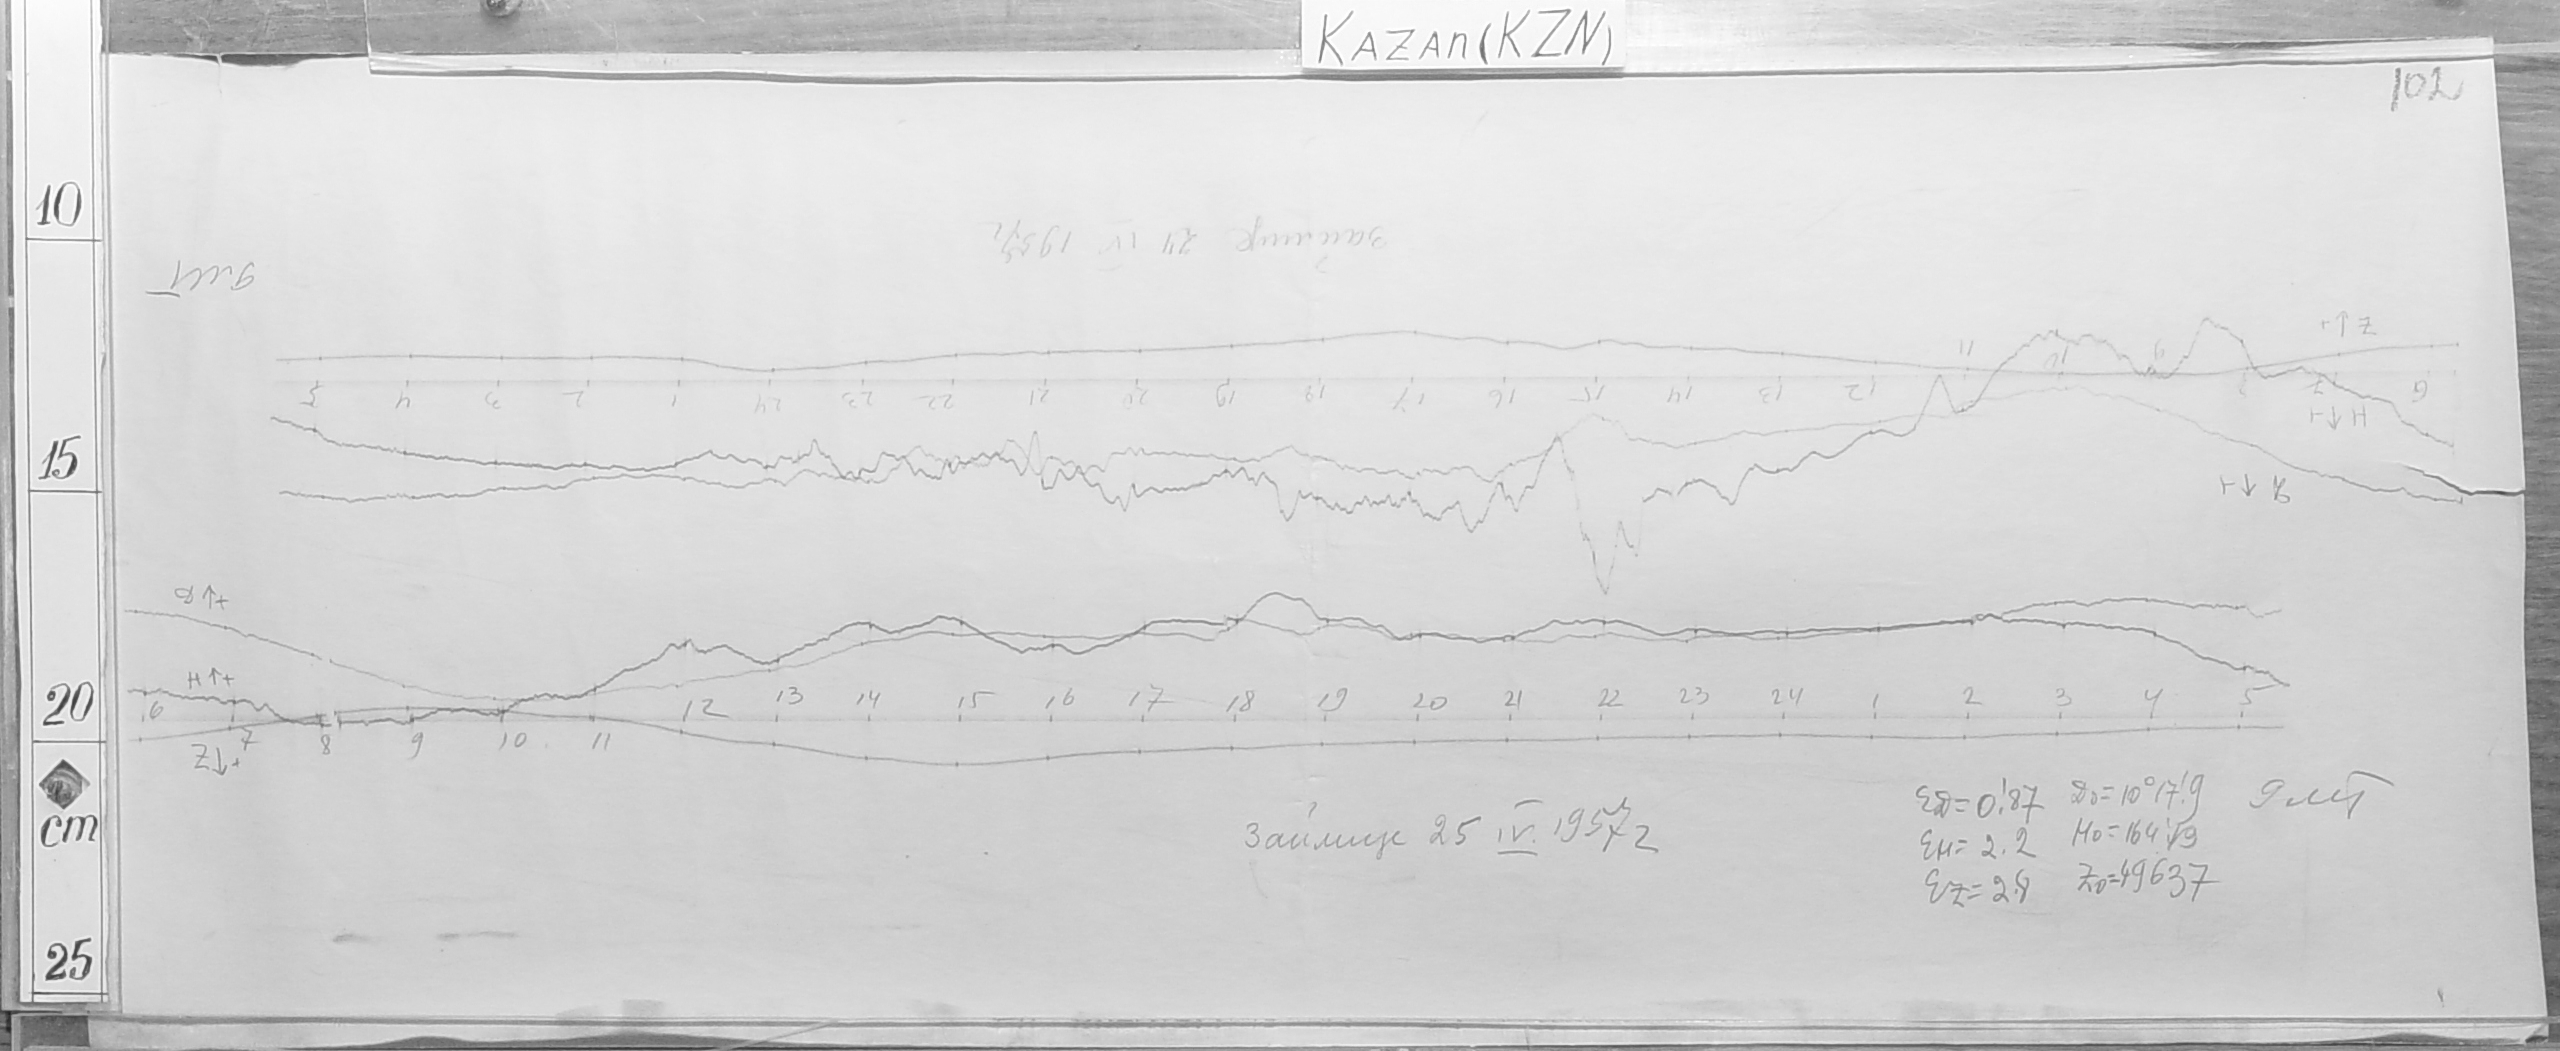 KAZAN(KZN)
102
10
15
20
cm
25
Займище 24 IV 1957г
ЯМТ
5 4 3 2 1 24 23 22 21 20 19 18 17 16 15 14 13 12 11 10 9 8 7 6
Z↑+
H↓+
D↓+
D↑+
H↑+
Z↓+
6 7 8 9 10 11 12 13 14 15 16 17 18 19 20 21 22 23 24 1 2 3 4 5
Займище 25 IV. 1957г
εD=0.'87 D0=10°17.'9 ЯМТ
εH=2.2
εZ=2.8 Z0=49637